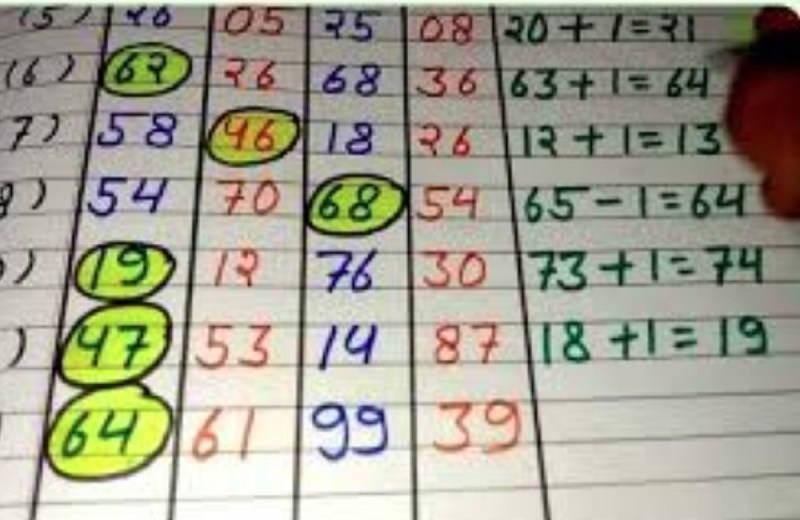 15) 26 05 25 08 20 + 1 = 21
16) 62 26 68 36 63 + 1 = 64
7) 58 46 18 26 12 + 1 = 13
8) 54 70 68 54 65 - 1 = 64
) 19 12 76 30 73 + 1 = 74
) 47 53 14 87 18 + 1 = 19
64 61 99 39